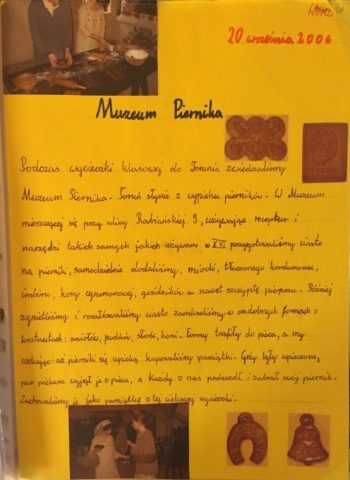 20 września 2006
Muzeum Piernika
Podczas wycieczki klasowej do Torunia zwiedzaliśmy
Muzeum Piernika. Toruń słynie z wypieku pierników. W Muzeum
mieszczącej się przy ulicy Rabiańskiej 9, używając receptur i
narzędzi takich samych jakich używano w XVI przygotowaliśmy ciasto
na piernik, samodzielnie dodaliśmy, miodu, tłuczonego kardamonu,
imbiru, kory cynamonowej, goździków a nawet szczyptę pieprzu. Później
zgnietliśmy i rozwałkowaliśmy ciasto zamknęliśmy w ozdobnych formach o
kształtach: aniołów, podków, słoni, koni. Formy trafiły do pieca, a my
czekając aż pierniki się upieką kupowaliśmy pamiątki. Gdy były upieczone,
pan piekarz wyjął je z pieca, a każdy z nas podszedł i zabrał swój piernik.
Zachowaliśmy je jako pamiątkę z tej ciekawej wycieczki.